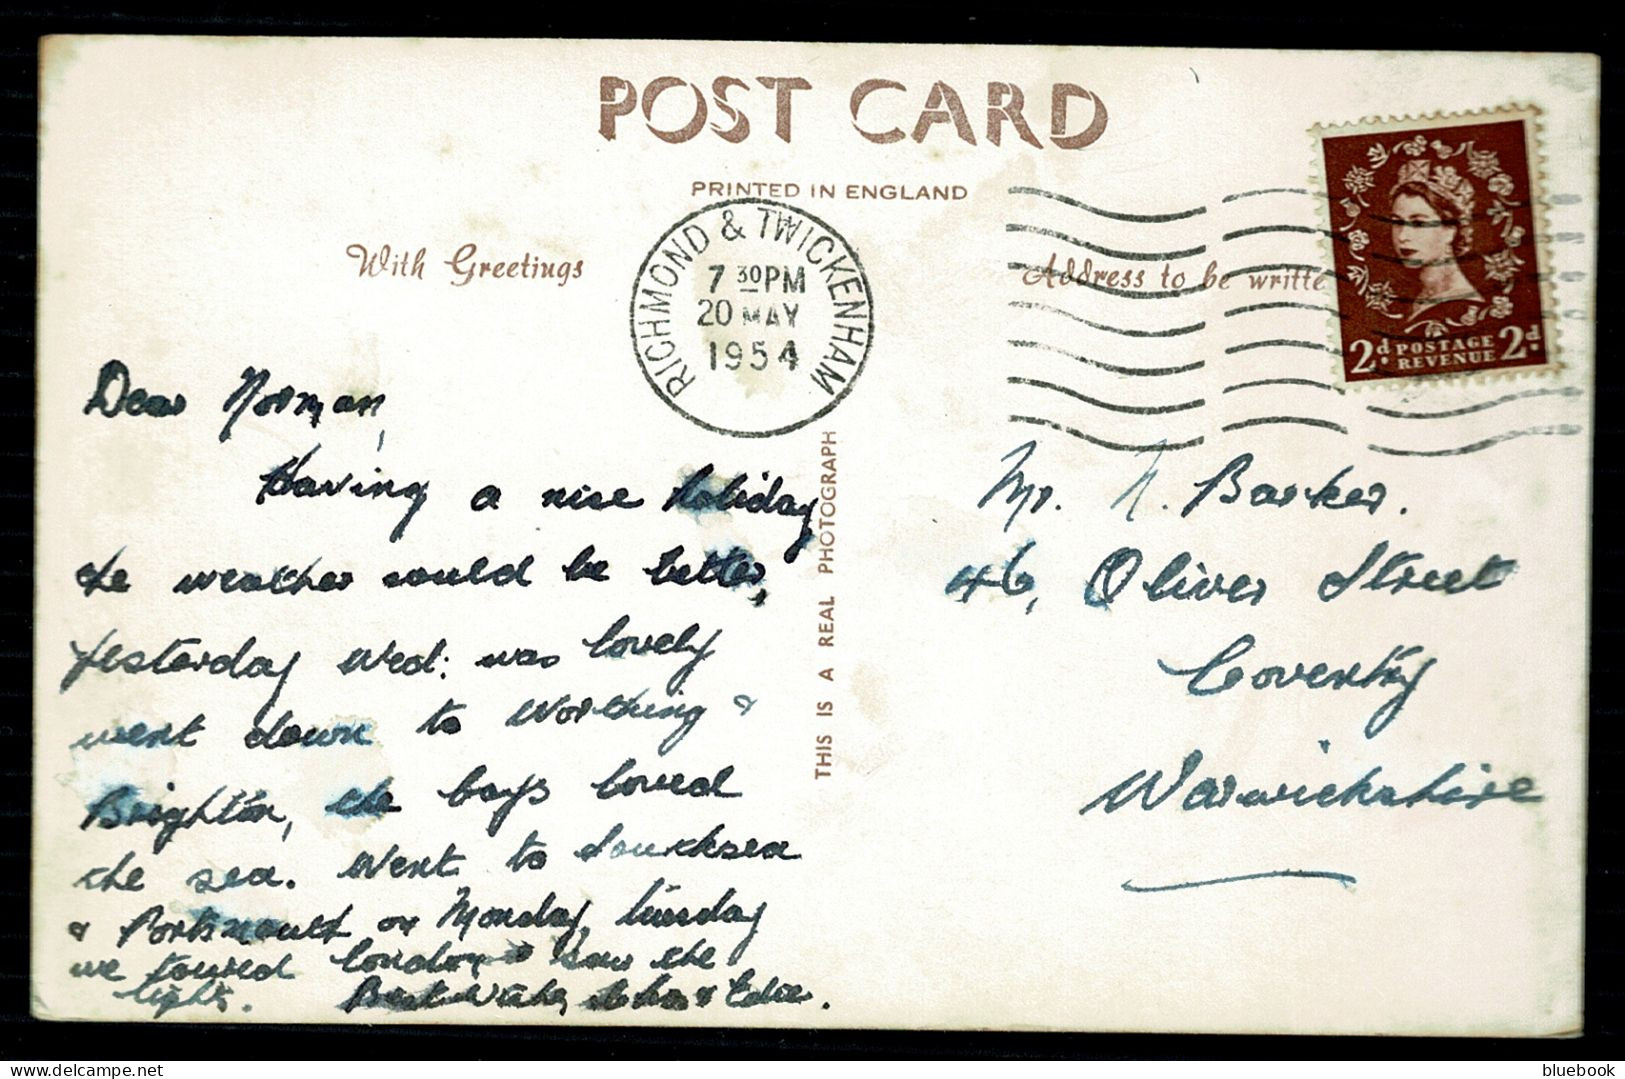 POST CARD
PRINTED IN ENGLAND
With Greetings
Address to be writte
RICHMOND & TWICKENHAM
7 30 PM
20 MAY
1954
2d POSTAGE REVENUE 2d
THIS IS A REAL PHOTOGRAPH
Dear Norman,
Having a nice holiday
the weather could be better,
Yesterday Wed: was lovely
went down to Worthing &
Brighton, the boys loved
the sea. Went to Southsea
& Portsmouth on Monday, Tuesday
we toured London & saw the
lights. Best Wishes, & Edie.
Mr. N. Barker.
46, Oliver Street
Coventry
Warwickshire
delcampe.net
bluebook